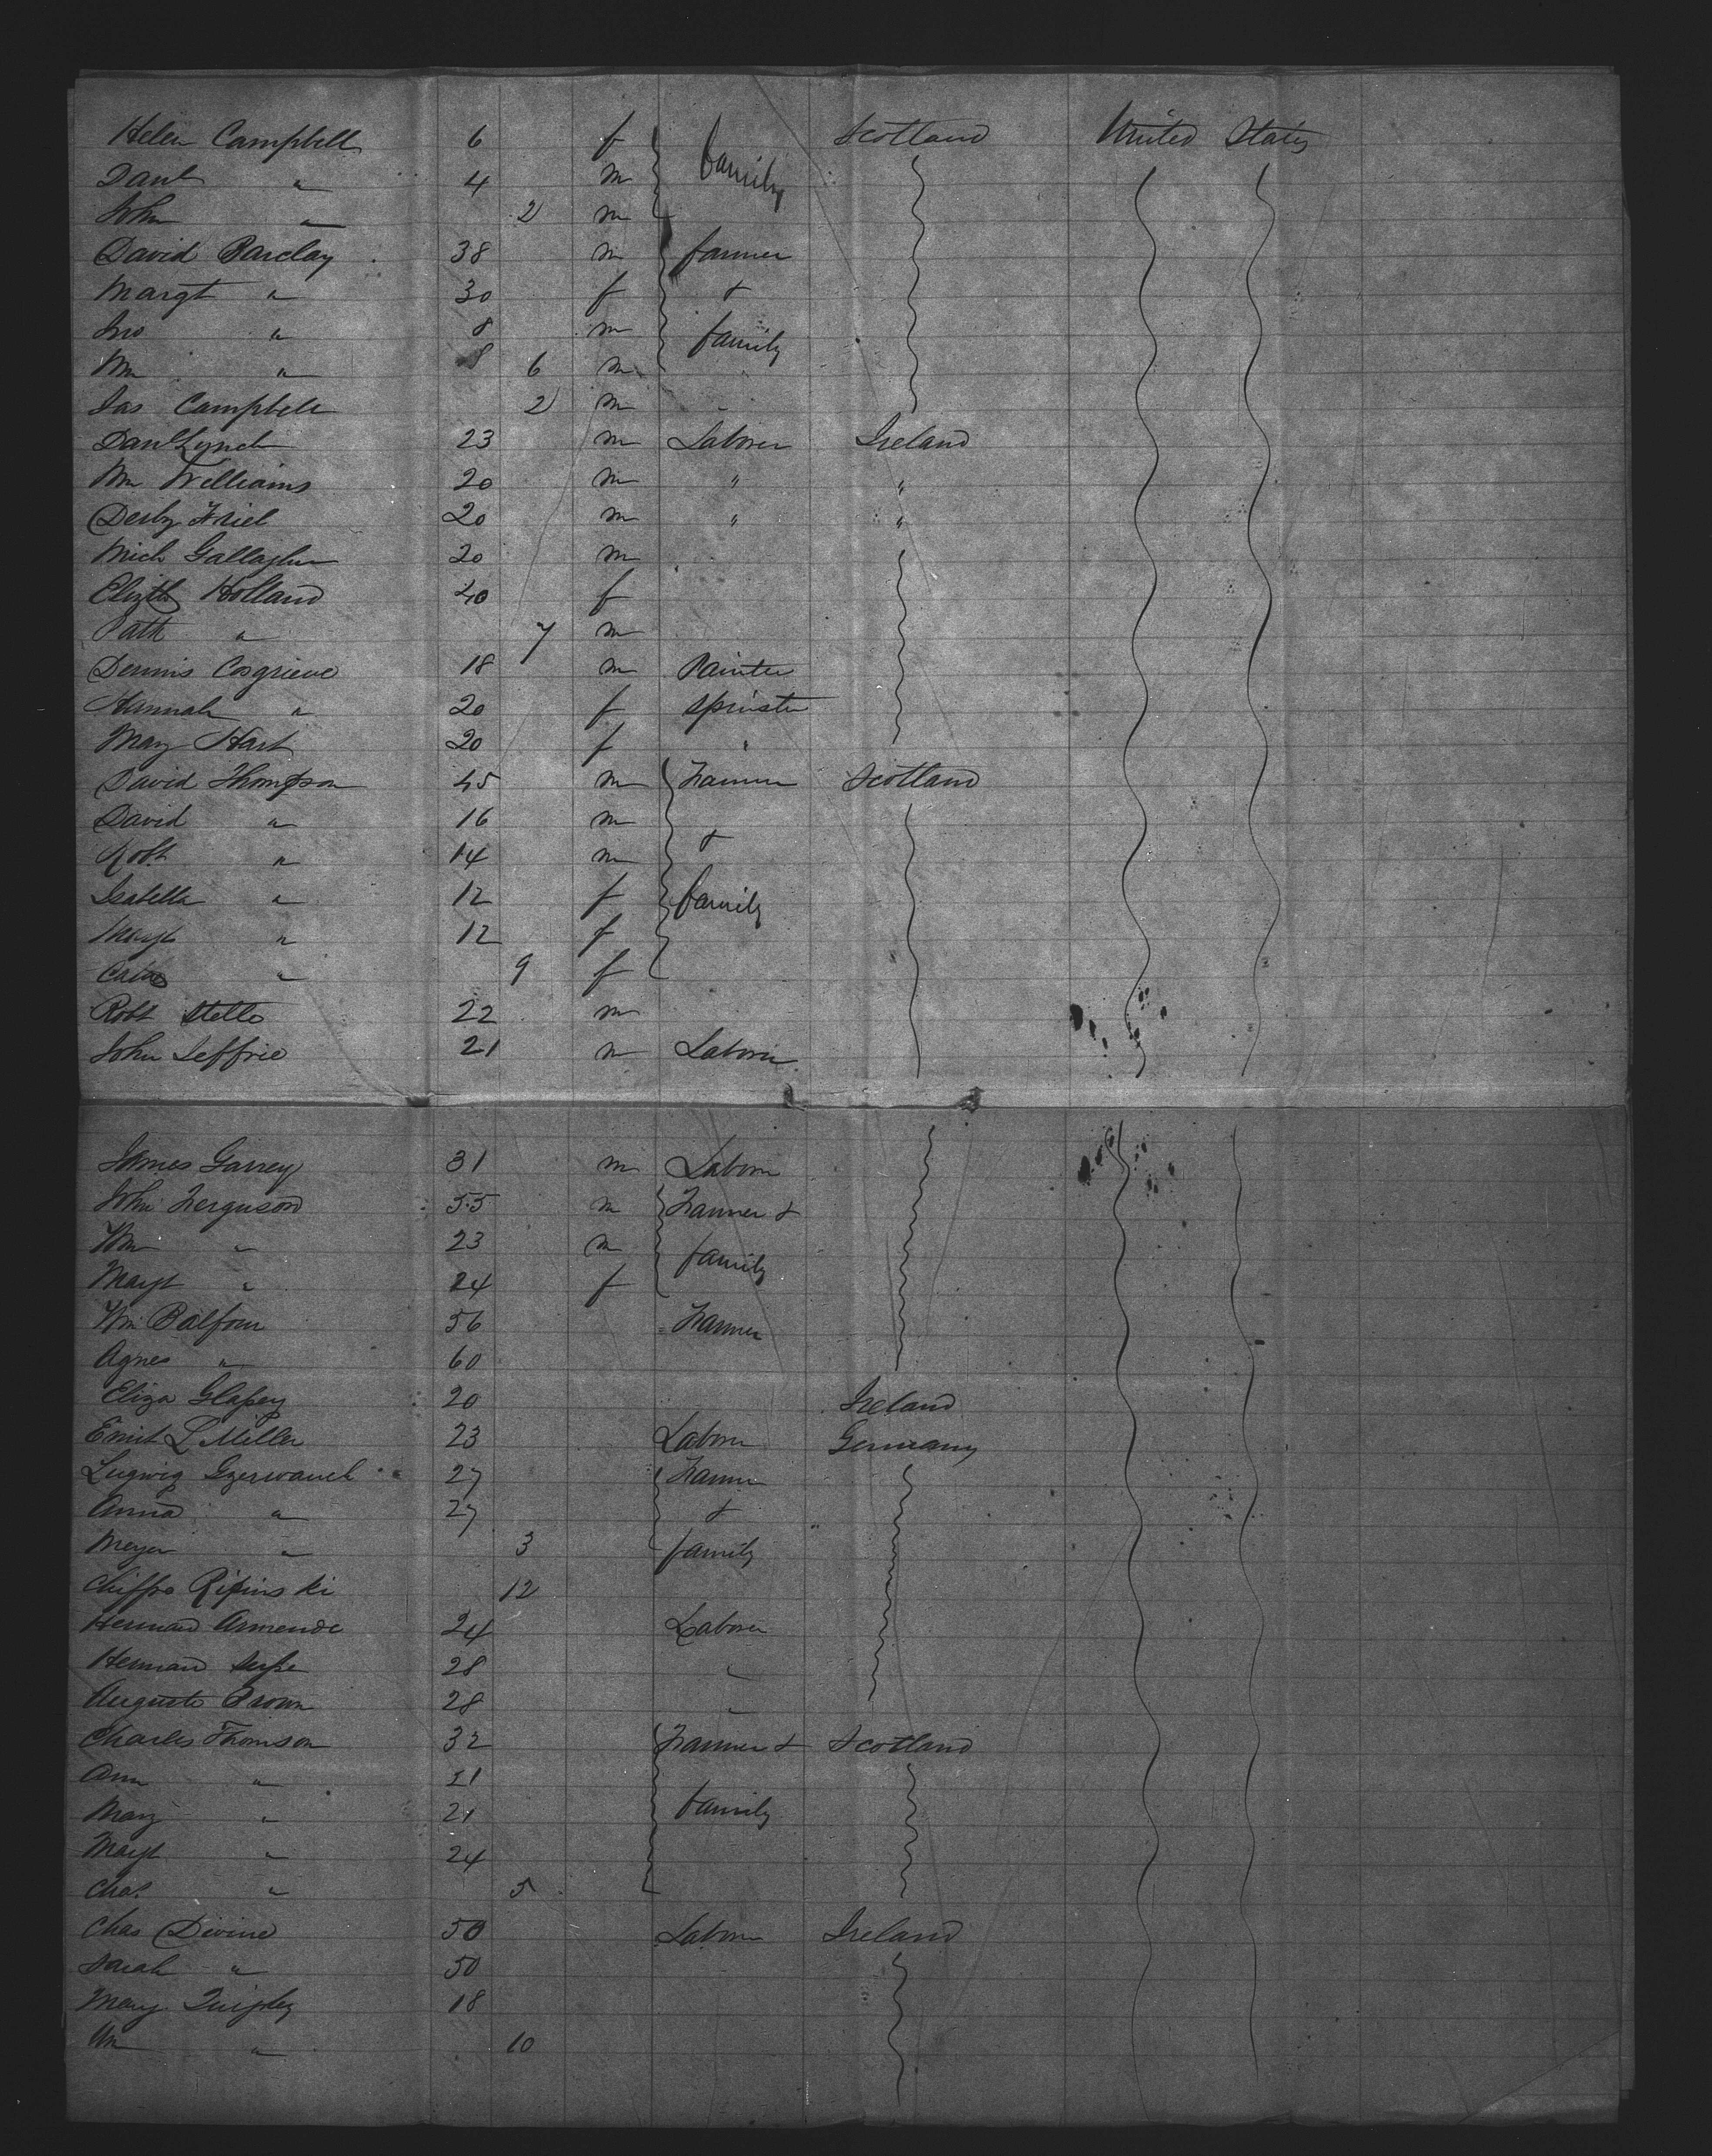 Helen Campbell 6 f family Scotland United States
Danl " 4 m
John " 2 m
David Barclay 38 m farmer
Margt " 30 f &
Jno " 8 m family
Wm " 8 6 m
Jas Campbell 2 m
Danl Lynch 23 m Laborer Ireland
Wm Williams 20 m " "
Derby Friel 20 m " "
Mich Gallagher 20 m
Elizth Holland 40 f
Patk " 7 m
Dennis Cosgrieve 18 m Painter
Hannah " 20 f Spinster
Mary Hart 20 f "
David Thompson 45 m Farmer Scotland
David " 16 m &
Robt " 14 m
Isabella " 12 f family
Margt " 12 f
" 9 f
Robt 22 m
John Jeffrie 21 m Laborer
James Garrey 31 m Laborer
John Ferguson 55 m Farmer &
Wm " 23 m family
Margt " 24 f
Wm Balfour 56 Farmer
Agnes " 60
Eliza 20 Ireland
L Miller 23 Laborer Germany
27 Farmer
Anna " 27 &
Meyer " 3 family
12
Herman 24 Laborer
Herman 28 "
Auguste Brown 28 "
Charles Thomson 32 Farmer & Scotland
Ann " 21
Mary " 21 family
Margt " 24
Chas " 5
Chas Divine 50 Laborer Ireland
Sarah " 50
Mary Quigley 18
Wm " 10